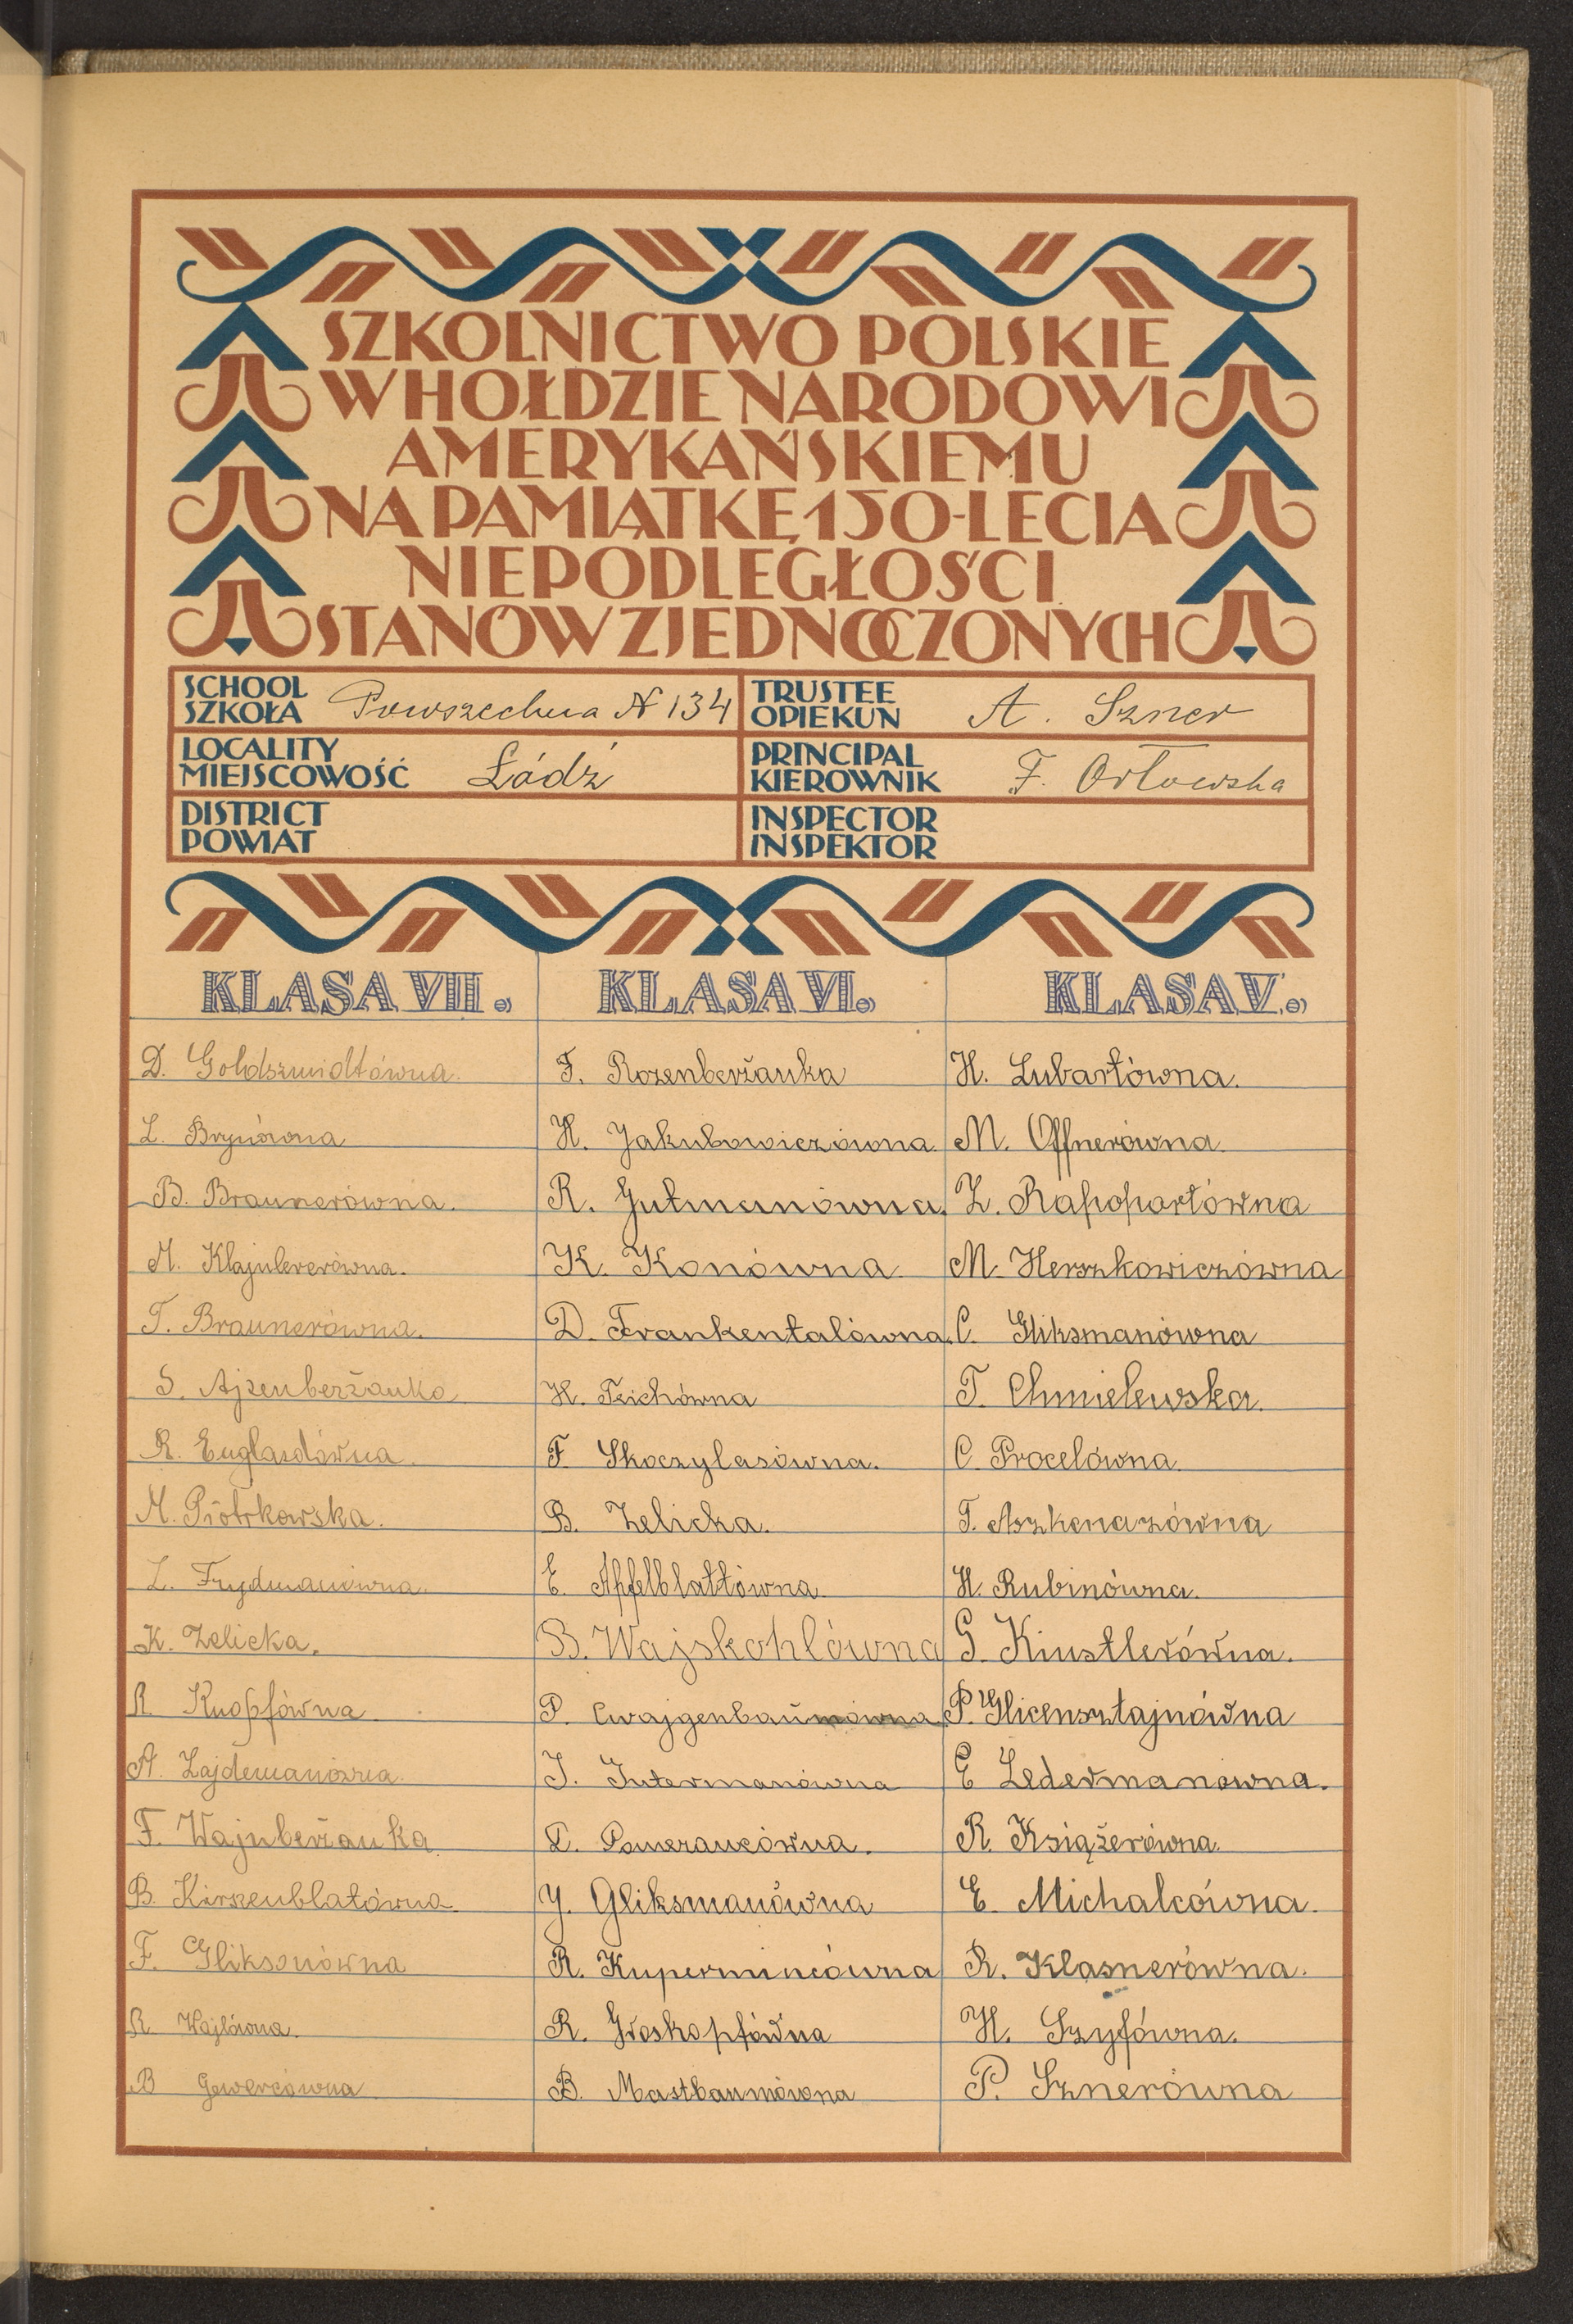 SZKOLNICTWO POLSKIE
W HOŁDZIE NARODOWI
AMERYKAŃSKIEMU
NA PAMIĄTKĘ 150-LECIA
NIEPODLEGŁOŚCI
STANÓW ZJEDNOCZONYCH
SCHOOL
SZKOŁA Powszechna N 134
TRUSTEE
OPIEKUN A. Szner
LOCALITY
MIEJSCOWOŚĆ Łódź
PRINCIPAL
KIEROWNIK F. Orłowska
DISTRICT
POWIAT
INSPECTOR
INSPEKTOR
KLASA VII.
D. Goldszmidtówna.
L. Brynówna
B. Braunerówna.
M. Klajnlererówna.
T. Braunerówna.
S. Ajzenberżanka
R. Englardówna.
M. Piotrkowska.
L. Frydmanówna.
K. Zelicka.
R. Knopfówna
A. Zajdemanówna.
F. Wajnberżanka
B. Kirszenblatówna.
F. Gliksonówna
R. Wajlówna.
B Gewercówna
KLASA VI.
F. Rozenberżanka
H. Jakubowiczówna.
R. Gutmanówna.
K. Konówna.
D. Frankentalówna.
H. Teichówna
F Skoczylasówna.
B. Zelicka.
E. Apfelblattówna.
B. Wajskohlówna
P. Cwajgenbaumówna
J. Intermanówna
D. Pomerancówna.
J. Gliksmanówna
R. Kupermincówna
R. Groskopfówna
B. Mastbaumówna
KLASA V.
H. Lubartówna.
M. Offnerówna.
Z. Rapoportówna
M. Herszkowiczówna
C. Gliksmanówna
T. Chmielewska.
C. Procelówna.
T. Aszkenazówna
H. Rubinówna.
G. Kinstlerówna.
P. Glicensztajnówna
E Ledermanówna.
R. Książerówna.
E. Michalcówna.
R. Klasnerówna.
H. Szyfówna.
P. Sznerówna